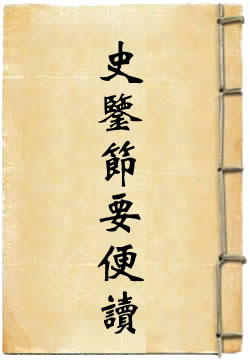 史鑒節要便讀